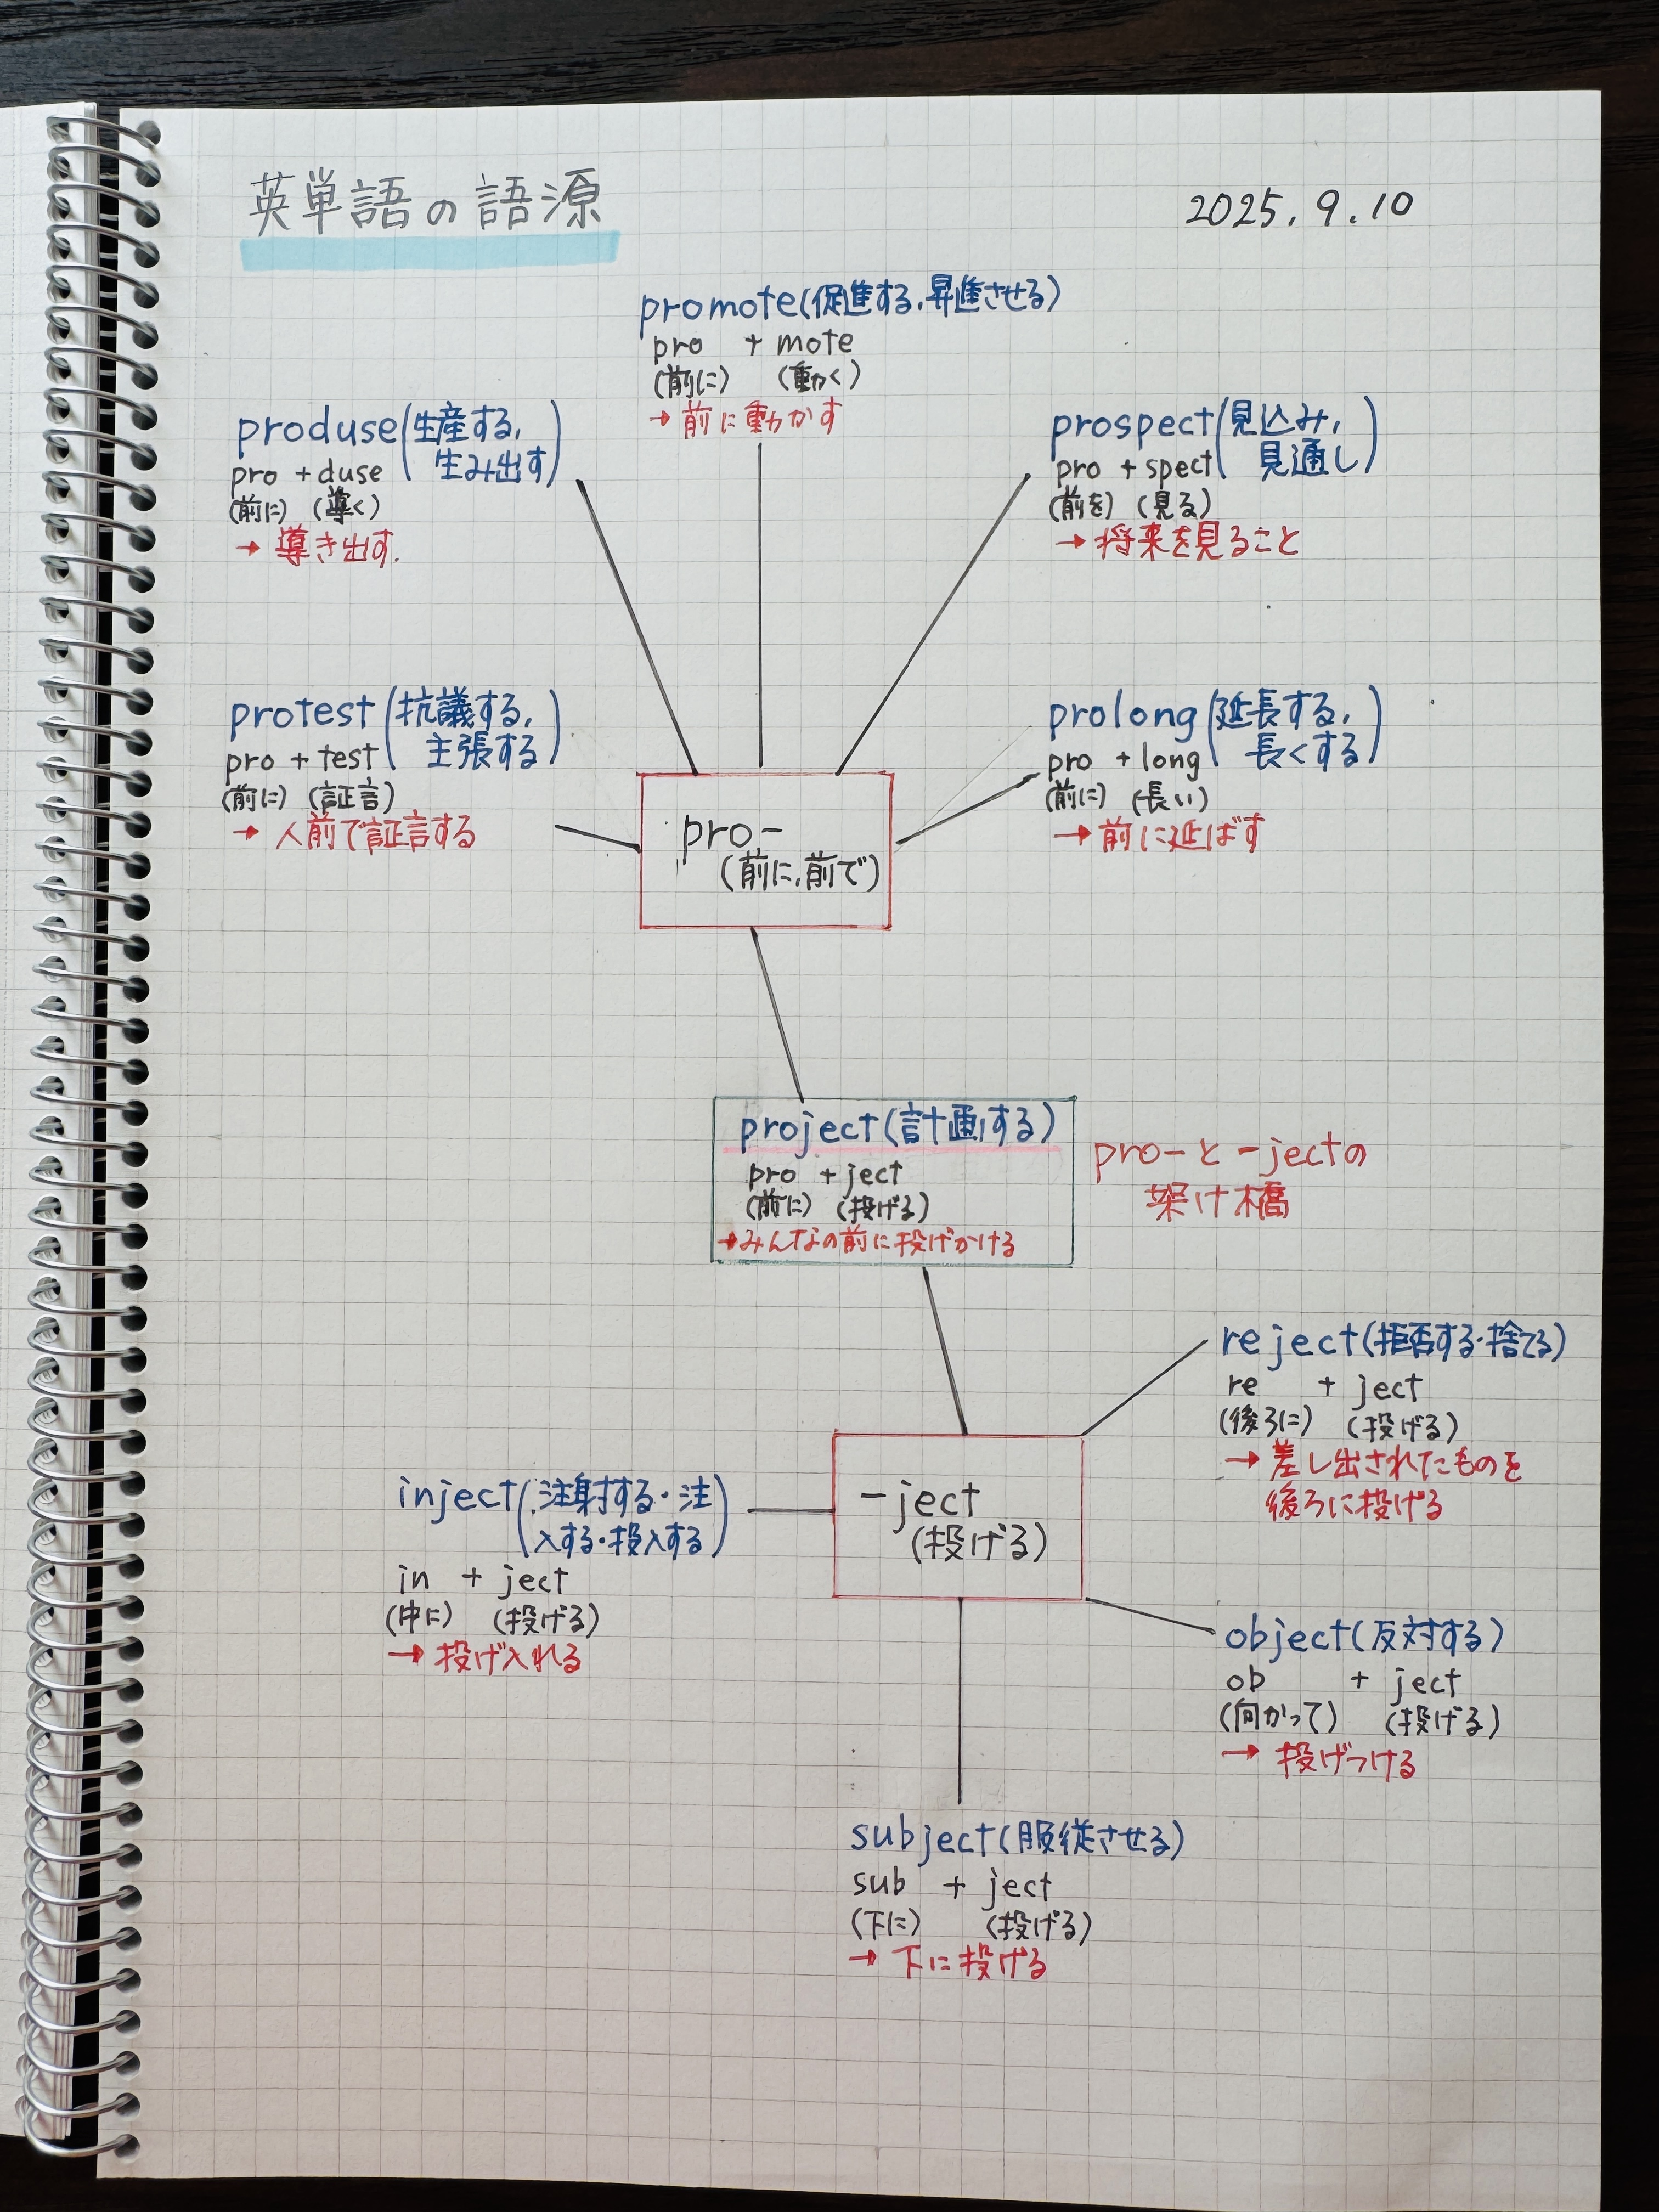 英単語の語源
2025.9.10
promote(促進する,昇進させる)
pro + mote
(前に) (動く)
→前に動かす
produse(生産する,
生み出す)
pro + duse
(前に) (導く)
→ 導き出す.
prospect(見込み,
見通し)
pro + spect
(前を) (見る)
→将来を見ること
protest(抗議する,
主張する)
pro + test
(前に) (証言)
→ 人前で証言する
prolong(延長する,
長くする)
pro + long
(前に) (長い)
→前に延ばす
pro-
(前に,前で)
project(計画する)
pro + ject
(前に) (投げる)
→みんなの前に投げかける
pro-と-jectの
架け橋
reject(拒否する・捨てる)
re + ject
(後ろに) (投げる)
→ 差し出されたものを
後ろに投げる
inject(注射する・注
入する・投入する)
in + ject
(中に) (投げる)
→ 投げ入れる
-ject
(投げる)
object(反対する)
ob + ject
(向かって) (投げる)
→ 投げつける
subject(服従させる)
sub + ject
(下に) (投げる)
→ 下に投げる